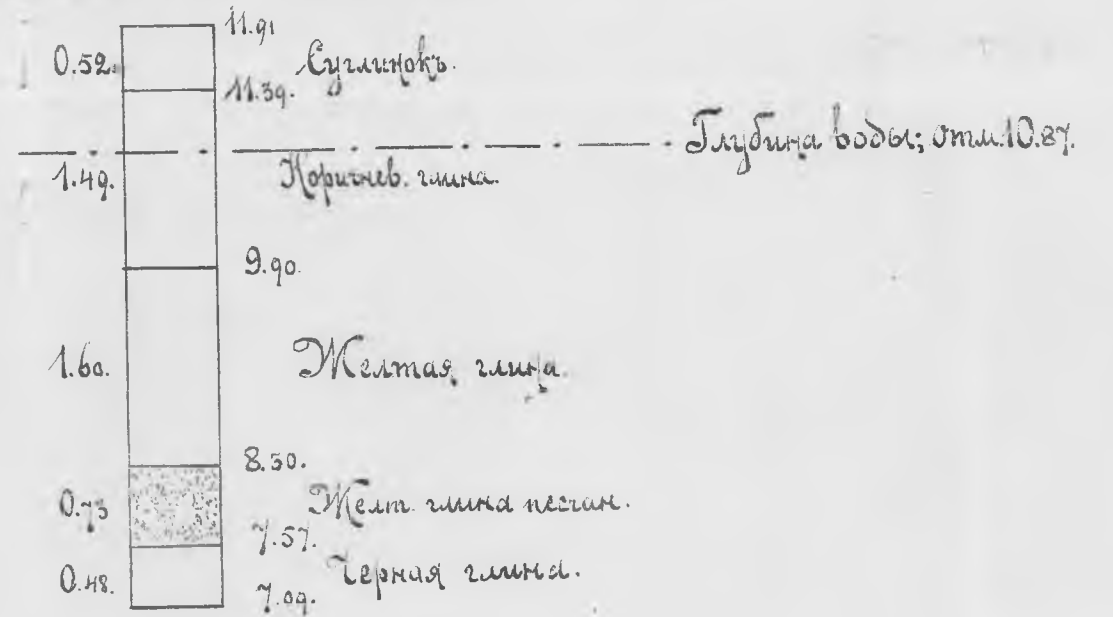 11.91
0.52. Суглинокъ.
11.39.
Глубина воды; отм. 10.87.
1.49. Коричнев. глина.
9.90.
1.60. Желтая глина.
8.30.
0.73 Желт. глина песчан.
7.57.
0.48. Черная глина.
7.09.